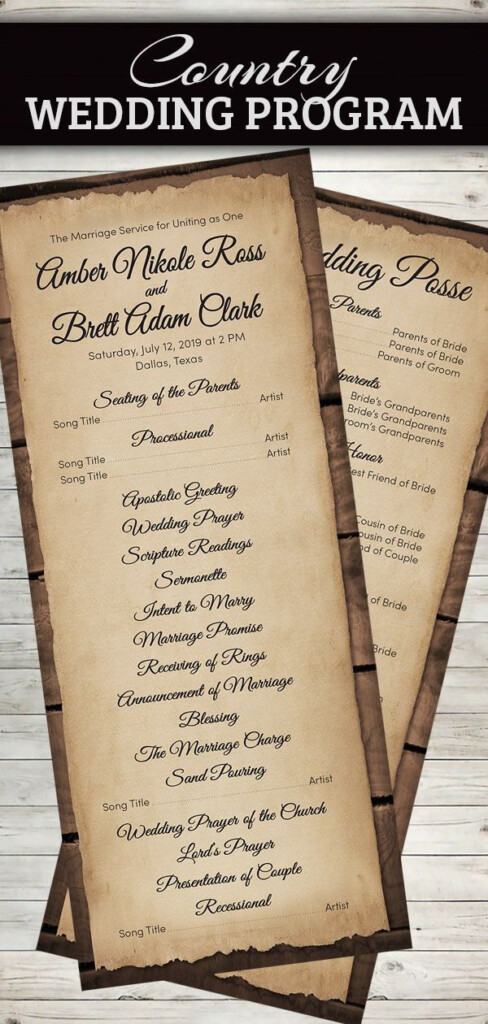 Country
WEDDING PROGRAM
The Marriage Service for Uniting as One
Amber Nikole Ross
and
Brett Adam Clark
Saturday, July 12, 2019 at 2 PM
Dallas, Texas
Seating of the Parents
Song Title Artist
Processional
Song Title Artist
Song Title Artist
Apostolic Greeting
Wedding Prayer
Scripture Readings
Sermonette
Intent to Marry
Marriage Promise
Receiving of Rings
Announcement of Marriage
Blessing
The Marriage Charge
Sand Pouring
Song Title Artist
Wedding Prayer of the Church
Lord's Prayer
Presentation of Couple
Recessional
Song Title Artist
dding Posse
Parents
Parents of Bride
Parents of Bride
Parents of Groom
dparents
Bride's Grandparents
Bride's Grandparents
room's Grandparents
Honor
est Friend of Bride
Cousin of Bride
ousin of Bride
nd of Couple
of Bride
Bride
of Groom